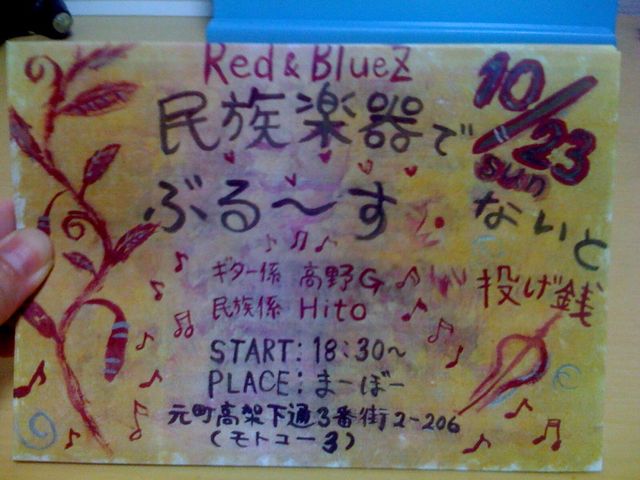 Red & BlueZ
10/23
sun
民族楽器で
ぶる～す
ないと
ギター係 高野G
投げ銭
民族係 Hito
START: 18:30～
PLACE: まーぼー
元町高架下通3番街2-206
(モトコー3)